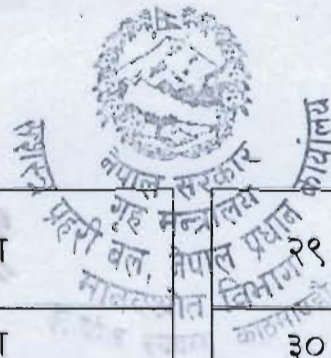 नेपाल सरकार
गृह मन्त्रालय
सशस्त्र प्रहरी बल, नेपाल प्रधान कार्यालय
मानव स्रोत विभाग
काठमाण्डौं
त २९
त ३०